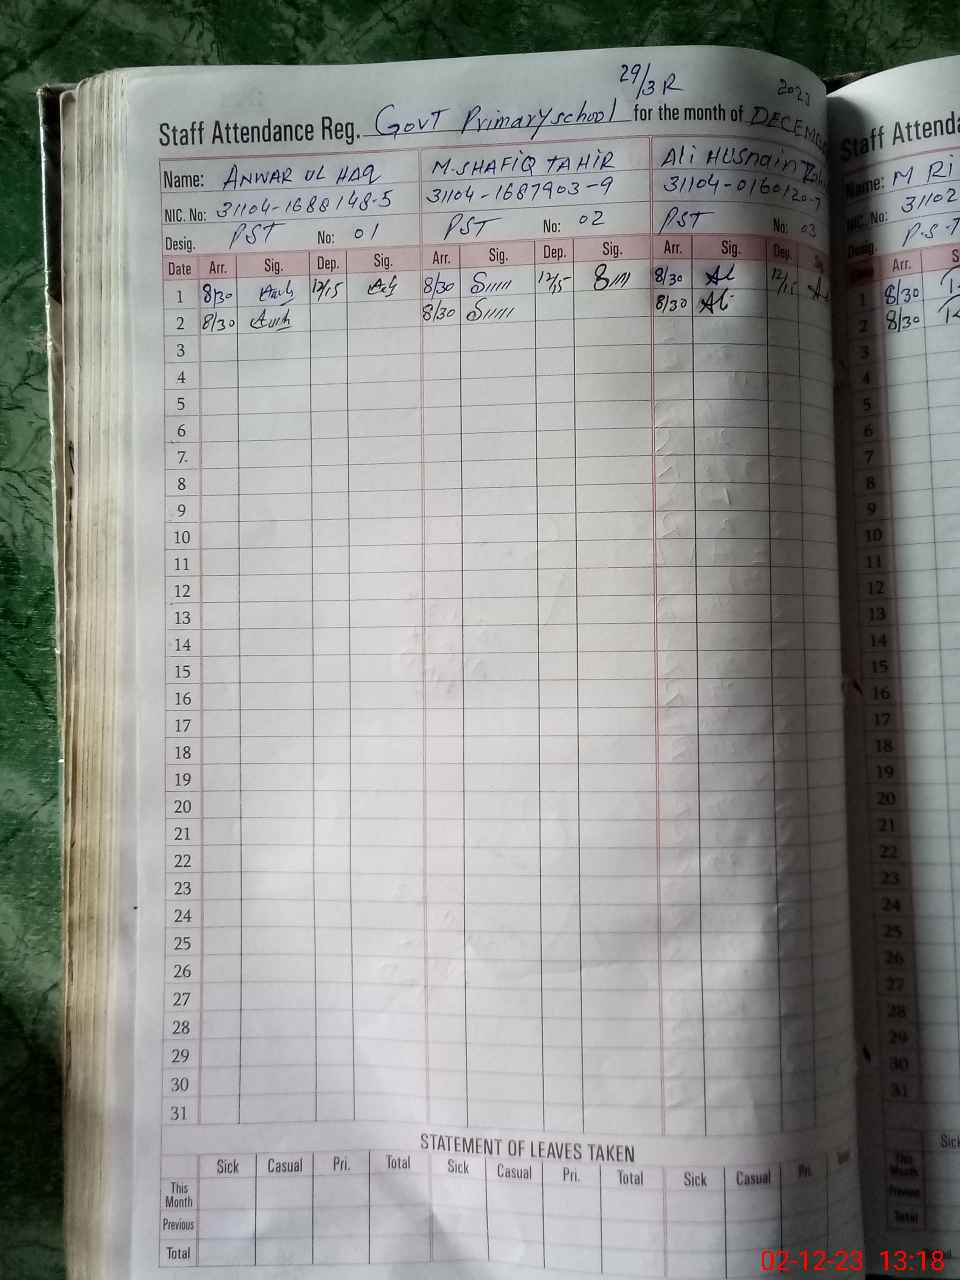 29/3R 2023
Staff Attendance Reg. GovT Primary school for the month of DECEMBE
Name: ANWAR UL HAQ M.SHAFIQ TAHIR Ali HUSnain
NIC. No: 31104-1688148-5 31104-1687903-9 31104-0160120-7
Desig. PST No: 01 PST No: 02 PST No: 03
Date Arr. Sig. Dep. Sig. Arr. Sig. Dep. Sig. Arr. Sig. Dep. Sig
1 8/30 12/15 8/30 12/15 8/30 12/15
2 8/30 8/30 8/30
3
4
5
6
7.
8
9
10
11
12
13
14
15
16
17
18
19
20
21
22
23
24
25
26
27
28
29
30
31
STATEMENT OF LEAVES TAKEN
Sick Casual Pri. Total Sick Casual Pri. Total Sick Casual Pri.
This Month
Previous
Total
Staff Attenda
Name: M Ri
NIC. No: 31102
Desig. P-S-T
Arr. S
1 8/30
2 8/30
3
4
5
6
7
8
9
10
11
12
13
14
15
16
17
18
19
20
21
22
23
24
25
26
27
28
29
30
31
Sick
This Month
Previous
Total
02-12-23 13:18